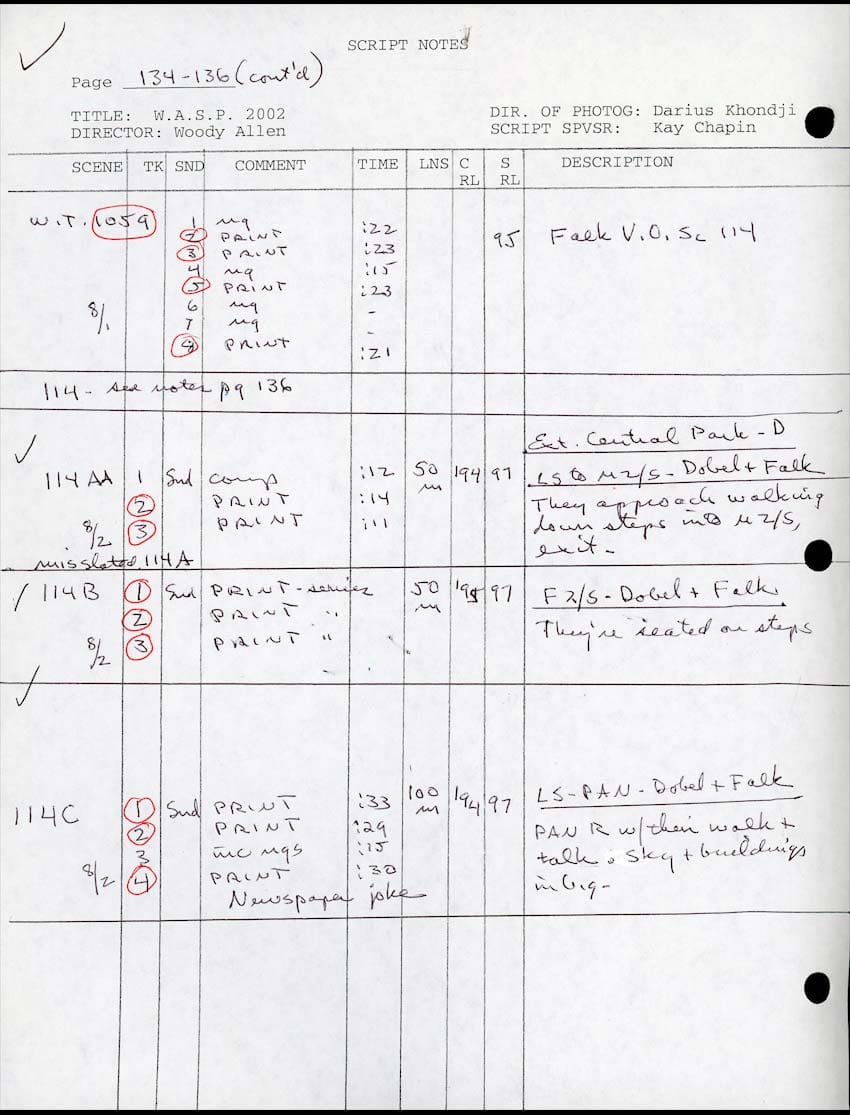 SCRIPT NOTES
Page 134-136 (cont'd)
TITLE: W.A.S.P. 2002
DIRECTOR: Woody Allen
DIR. OF PHOTOG: Darius Khondji
SCRIPT SPVSR: Kay Chapin
SCENE TK SND COMMENT TIME LNS C RL S RL DESCRIPTION
W.T. 1059 1 ng :22
2 PRINT :23 95 Falk V.O. Sc 114
3 PRINT
4 ng :15
5 PRINT :23
8/1 6 ng -
7 ng -
PRINT :21
114 - see notes pg 136
Ext. Central Park - D
114AA 1 Snd comp :12 50 m 194 97 LS to M2/S - Dobel + Falk
2 PRINT :14 They approach walking
8/2 3 PRINT :11 down steps into M2/S,
exit -
misslated 114A
114B 1 Snd PRINT - series 50 m 195 97 F2/S - Dobel + Falk
2 PRINT "
8/2 3 PRINT " They're seated on steps
114C 1 Snd PRINT :33 100 m 194 97 LS - PAN - Dobel + Falk
2 PRINT :29 PAN R w/ their walk +
3 inc ngs :15 talk. Sky + buildings
8/2 4 PRINT :30 in b.g. -
Newspaper joke